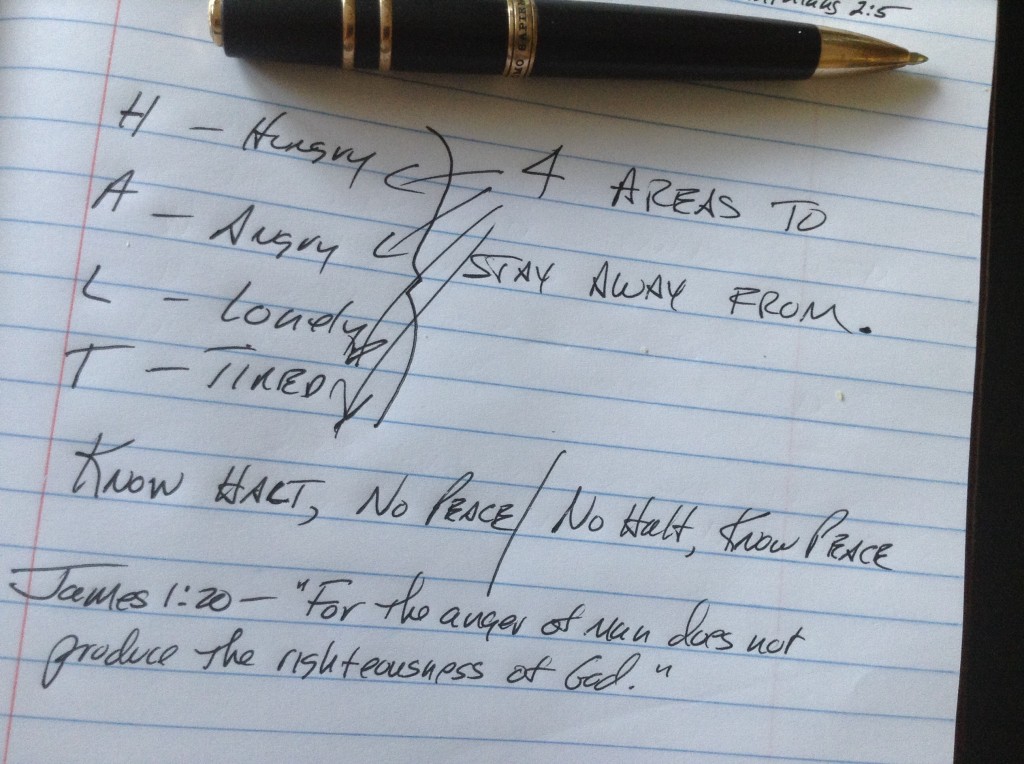 2:5
H - Hungry
4 AREAS TO
A - Angry
STAY AWAY FROM.
L - Lonely
T - TIRED
KNOW HALT, NO PEACE / No Halt, Know PEACE
James 1:20 - "For the anger of man does not
produce the righteousness of God."